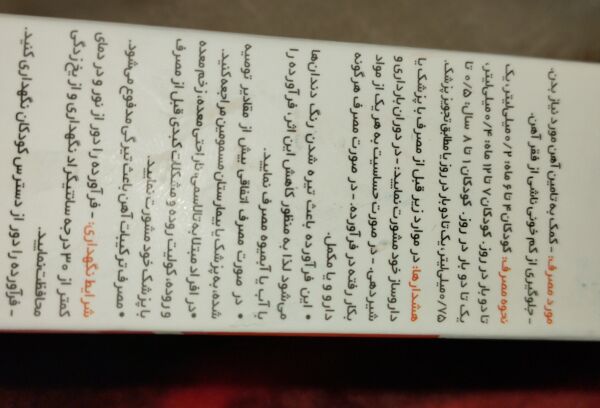 مورد مصرف: - کمک به تامین آهن مورد نیاز بدن.
- جلوگیری از کم خونی ناشی از فقر آهن.
نحوه مصرف: کودکان ۴ تا ۶ ماه: ۰/۲ میلی‌لیتر، یک
تا دو بار در روز. کودکان ۷ تا ۱۲ ماه: ۰/۴ میلی‌لیتر،
یک تا دو بار در روز. کودکان ۱ تا ۶ سال: ۰/۵ تا
۰/۷۵ میلی‌لیتر، یک تا دو بار در روز یا مطابق تجویز پزشک.
هشدارها: در موارد زیر قبل از مصرف با پزشک یا
داروساز خود مشورت نمایید: - در دوران بارداری و
شیردهی. - در صورت حساسیت به هر یک از مواد
بکار رفته در فرآورده. - در صورت مصرف هرگونه
دارو و یا مکمل.
• این فرآورده باعث تیره شدن رنگ دندان‌ها
می‌شود لذا به منظور کاهش این اثر، فرآورده را
با آب یا آبمیوه مصرف نمایید.
• در صورت مصرف اتفاقی بیش از مقادیر توصیه
شده، به پزشک یا بیمارستان مسمومین مراجعه کنید.
• در افراد مبتلا به تالاسمی، ناراحتی معده، زخم معده
و روده، کولیت روده و مشکلات کبدی قبل از مصرف
با پزشک خود مشورت نمایید.
• مصرف ترکیبات آهن باعث تیرگی مدفوع می‌شود.
شرایط نگهداری: - فرآورده را دور از نور و در دمای
کمتر از ۳۰ درجه سانتیگراد نگهداری و از یخ زدگی
محافظت نمایید.
- فرآورده را دور از دسترس کودکان نگهداری کنید.